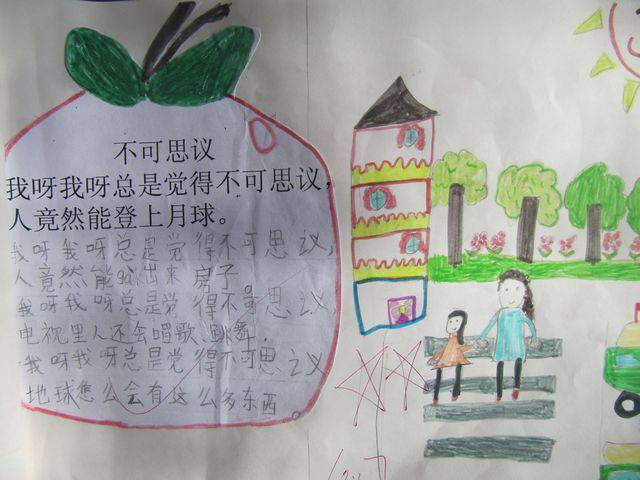 不可思议
我呀我呀总是觉得不可思议，
人竟然能登上月球。
我呀我呀总是觉得不可思议，
人竟然能gai出来房子。
我呀我呀总是觉得不可思议，
电视里人还会唱歌、跳舞。
我呀我呀总是觉得不可思议
地球怎么会有这么多东西。